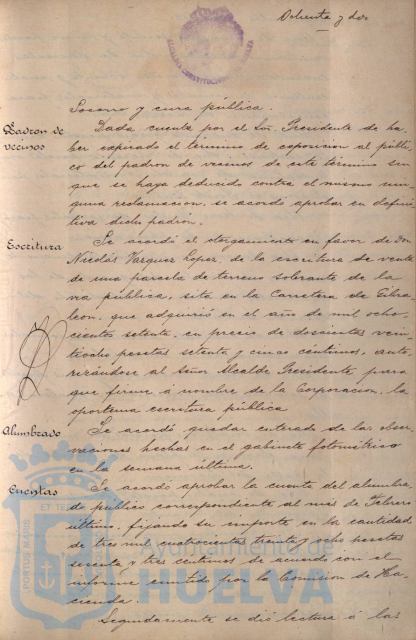 Ochenta y dos
Socorro y cura pública.
Padron de vecinos
Dada cuenta por el Sor. Presidente de ha
ber espirado el termino de esposicion al públi
co del padron de vecinos de este término sin
que se haya deducido contra el mismo nin
guna reclamacion, se acordó aprobar en defini
tiva dicho padrón.
Escritura
Se acordó el otorgamiento en favor de Don
Nicolás Vazquez Lopez, de la escritura de venta
de una parcela de terreno sobrante de la
via pública, sita en la Carretera de Gibra
leon, que adquirió en el año de mil ocho
cientos setenta, en precio de doscientas vein
tiocho pesetas setenta y cinco céntimos, auto
rizándose al Señor Alcalde Presidente para
que firme á nombre de la Corporacion, la
oportuna escritura pública
Alumbrado
Se acordó quedar enterado de las obser
vaciones hechas en el gabinete fotométrico
en la semana última.
Cuentas
Se acordó aprobar la cuenta del alumbra
do público correspondiente al mes de Febrero
último, fijando su importe en la cantidad
de tres mil cuatrocientas treinta y ocho pesetas
sesenta y tres centimos de acuerdo con el
informe emitido por la Comision de Ha
cienda.
Seguidamente se dió lectura á las
PORTUS MARIS ET TER
Ayuntamiento de
HUELVA